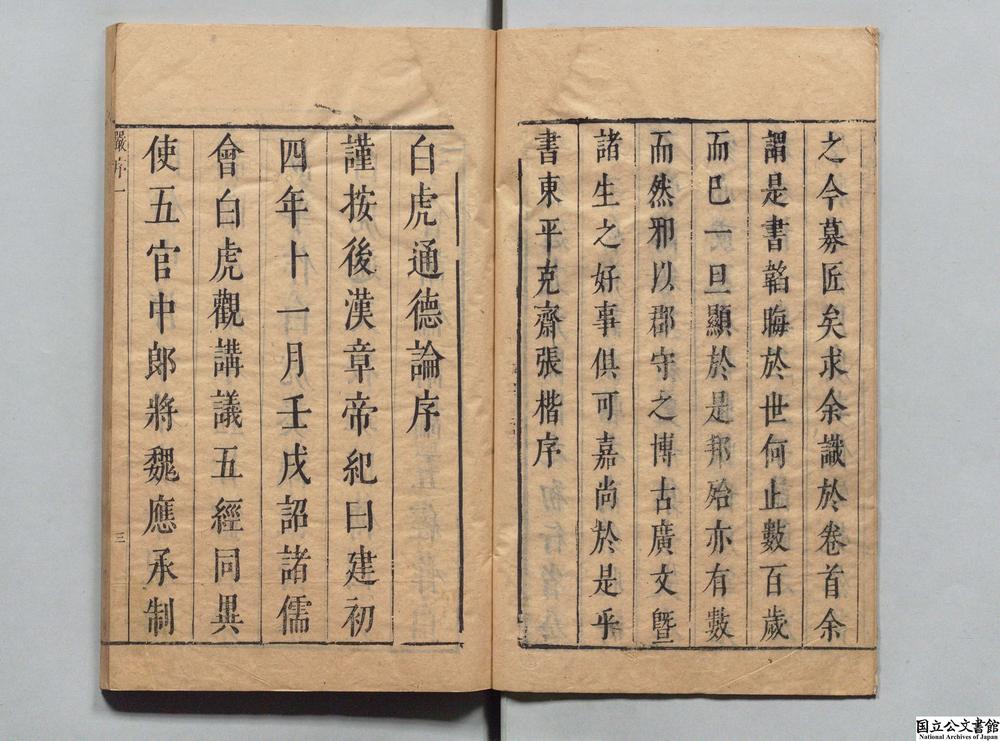 之今募匠矣求余識於卷首余
謂是書韜晦於世何止數百歲
而已一旦顯於是邦殆亦有數
而然邪以郡守之博古廣文暨
諸生之好事俱可嘉尚於是乎
書東平克齋張楷序
白虎通德論序
謹按後漢章帝紀曰建初
四年十一月壬戌詔諸儒
會白虎觀講議五經同異
使五官中郎將魏應承制
嚴序一
三
国立公文書館
National Archives of Japan